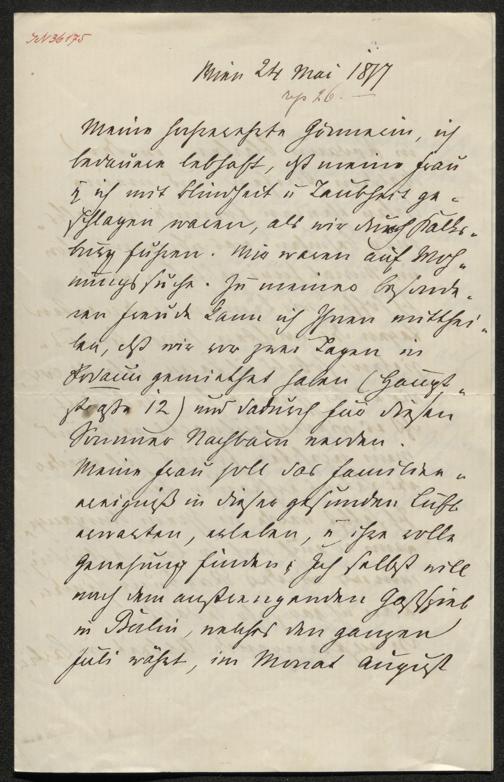 JN 36175
Wien 24 Mai 1877
rep 26. —
Meine hochverehrte Gönnerin, ich
bedauere lebhaft, dß meine Frau
u ich mit Blindheit u Taubheit ge-
schlagen waren, als wir durch Kalks-
burg fuhren. Wir waren auf Woh-
nungssuche. Zu meiner besonde-
ren Freude kann ich Ihnen mitthei-
len, dß wir vor zwei Tagen in
Rodaun gemiethet haben (Haupt-
straße 12) und dadurch für diesen
Sommer Nachbarn werden.
Meine Frau soll das Familien-
ereigniß in dieser gesunden Luft
erwarten, erleben, u ihre volle
Genesung finden; Ich selbst will
nach dem anstrengenden Gastspiel
in Berlin, welches den ganzen
Juli währt, im Monat August